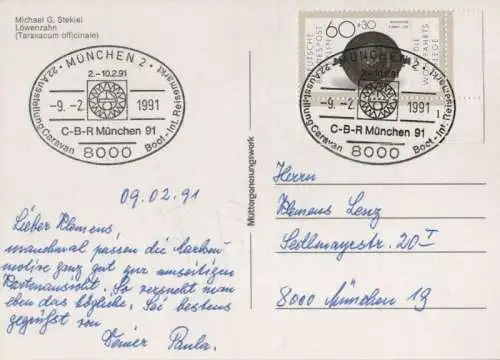 Michael G. Stekiel
Löwenzahn
(Taraxacum officinale)
· MÜNCHEN 2 ·
22. Ausstellung Caravan
Boot - Int. Reisemarkt
2.-10.2.91
-9. -2. 1991
C-B-R München 91
8000
DEUTSCHE BUNDESPOST BERLIN
60+30
FÜR DIE WOHLFAHRTSPFLEGE
· MÜNCHEN 2 ·
22. Ausstellung Caravan
Boot - Int. Reisemarkt
-9. -2. 1991
C-B-R München 91
8000
Müttergenesungswerk
09.02.91
Lieber Klemens,
manchmal passen die Marken-
motive ganz gut zur umseitigen
Kartenansicht. So versucht man
eben das Mögliche. Sei bestens
gegrüßt von
Deiner Paula.
Herrn
Klemens Lenz
Sedlmayrstr. 20 I
8000 München 19